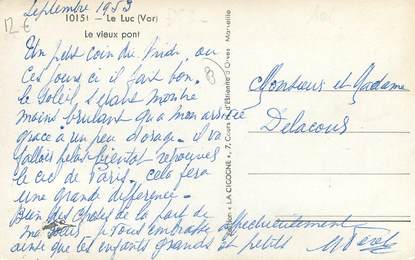 Septembre 1953
12 €
10151 - Le Luc (Var)
Le vieux pont
Un petit coin du Midi, ou
ces jours ci il fait bon.
le soleil s'étant montré
moins brulant qu'a mon arrivée
grace à un peu d'orage. il va
falloir bientot retrouver
le ciel de Paris. cela fera
une grande difference.
Bien des choses de la part de
ma
vous embrasse affectueusement
ainsi que les enfants grands et petits
Monsieur et Madame
Delacour
Edition "LA CIGOGNE", 7, Cours d'Estienne d'Orves Marseille